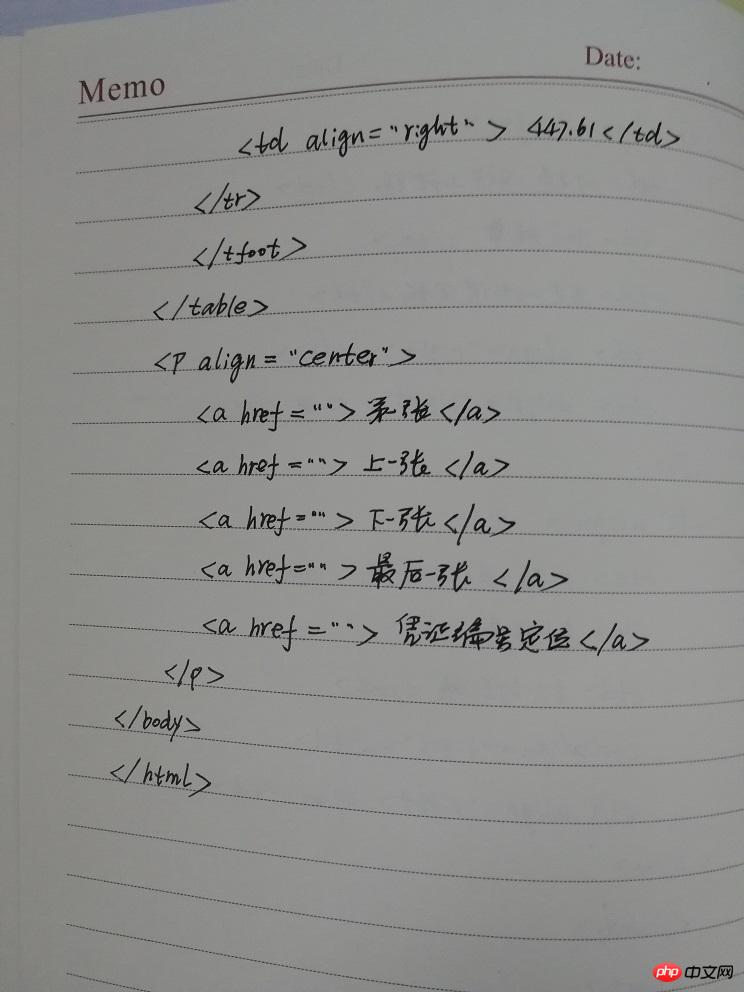 Memo
Date:
<td align="right"> 447.61</td>
</tr>
</tfoot>
</table>
<p align="center">
<a href=""> 张</a>
<a href=""> 上一张</a>
<a href=""> 下一张</a>
<a href=""> 最后一张 </a>
<a href=""> 凭证编号定位</a>
</p>
</body>
</html>
php 中文网